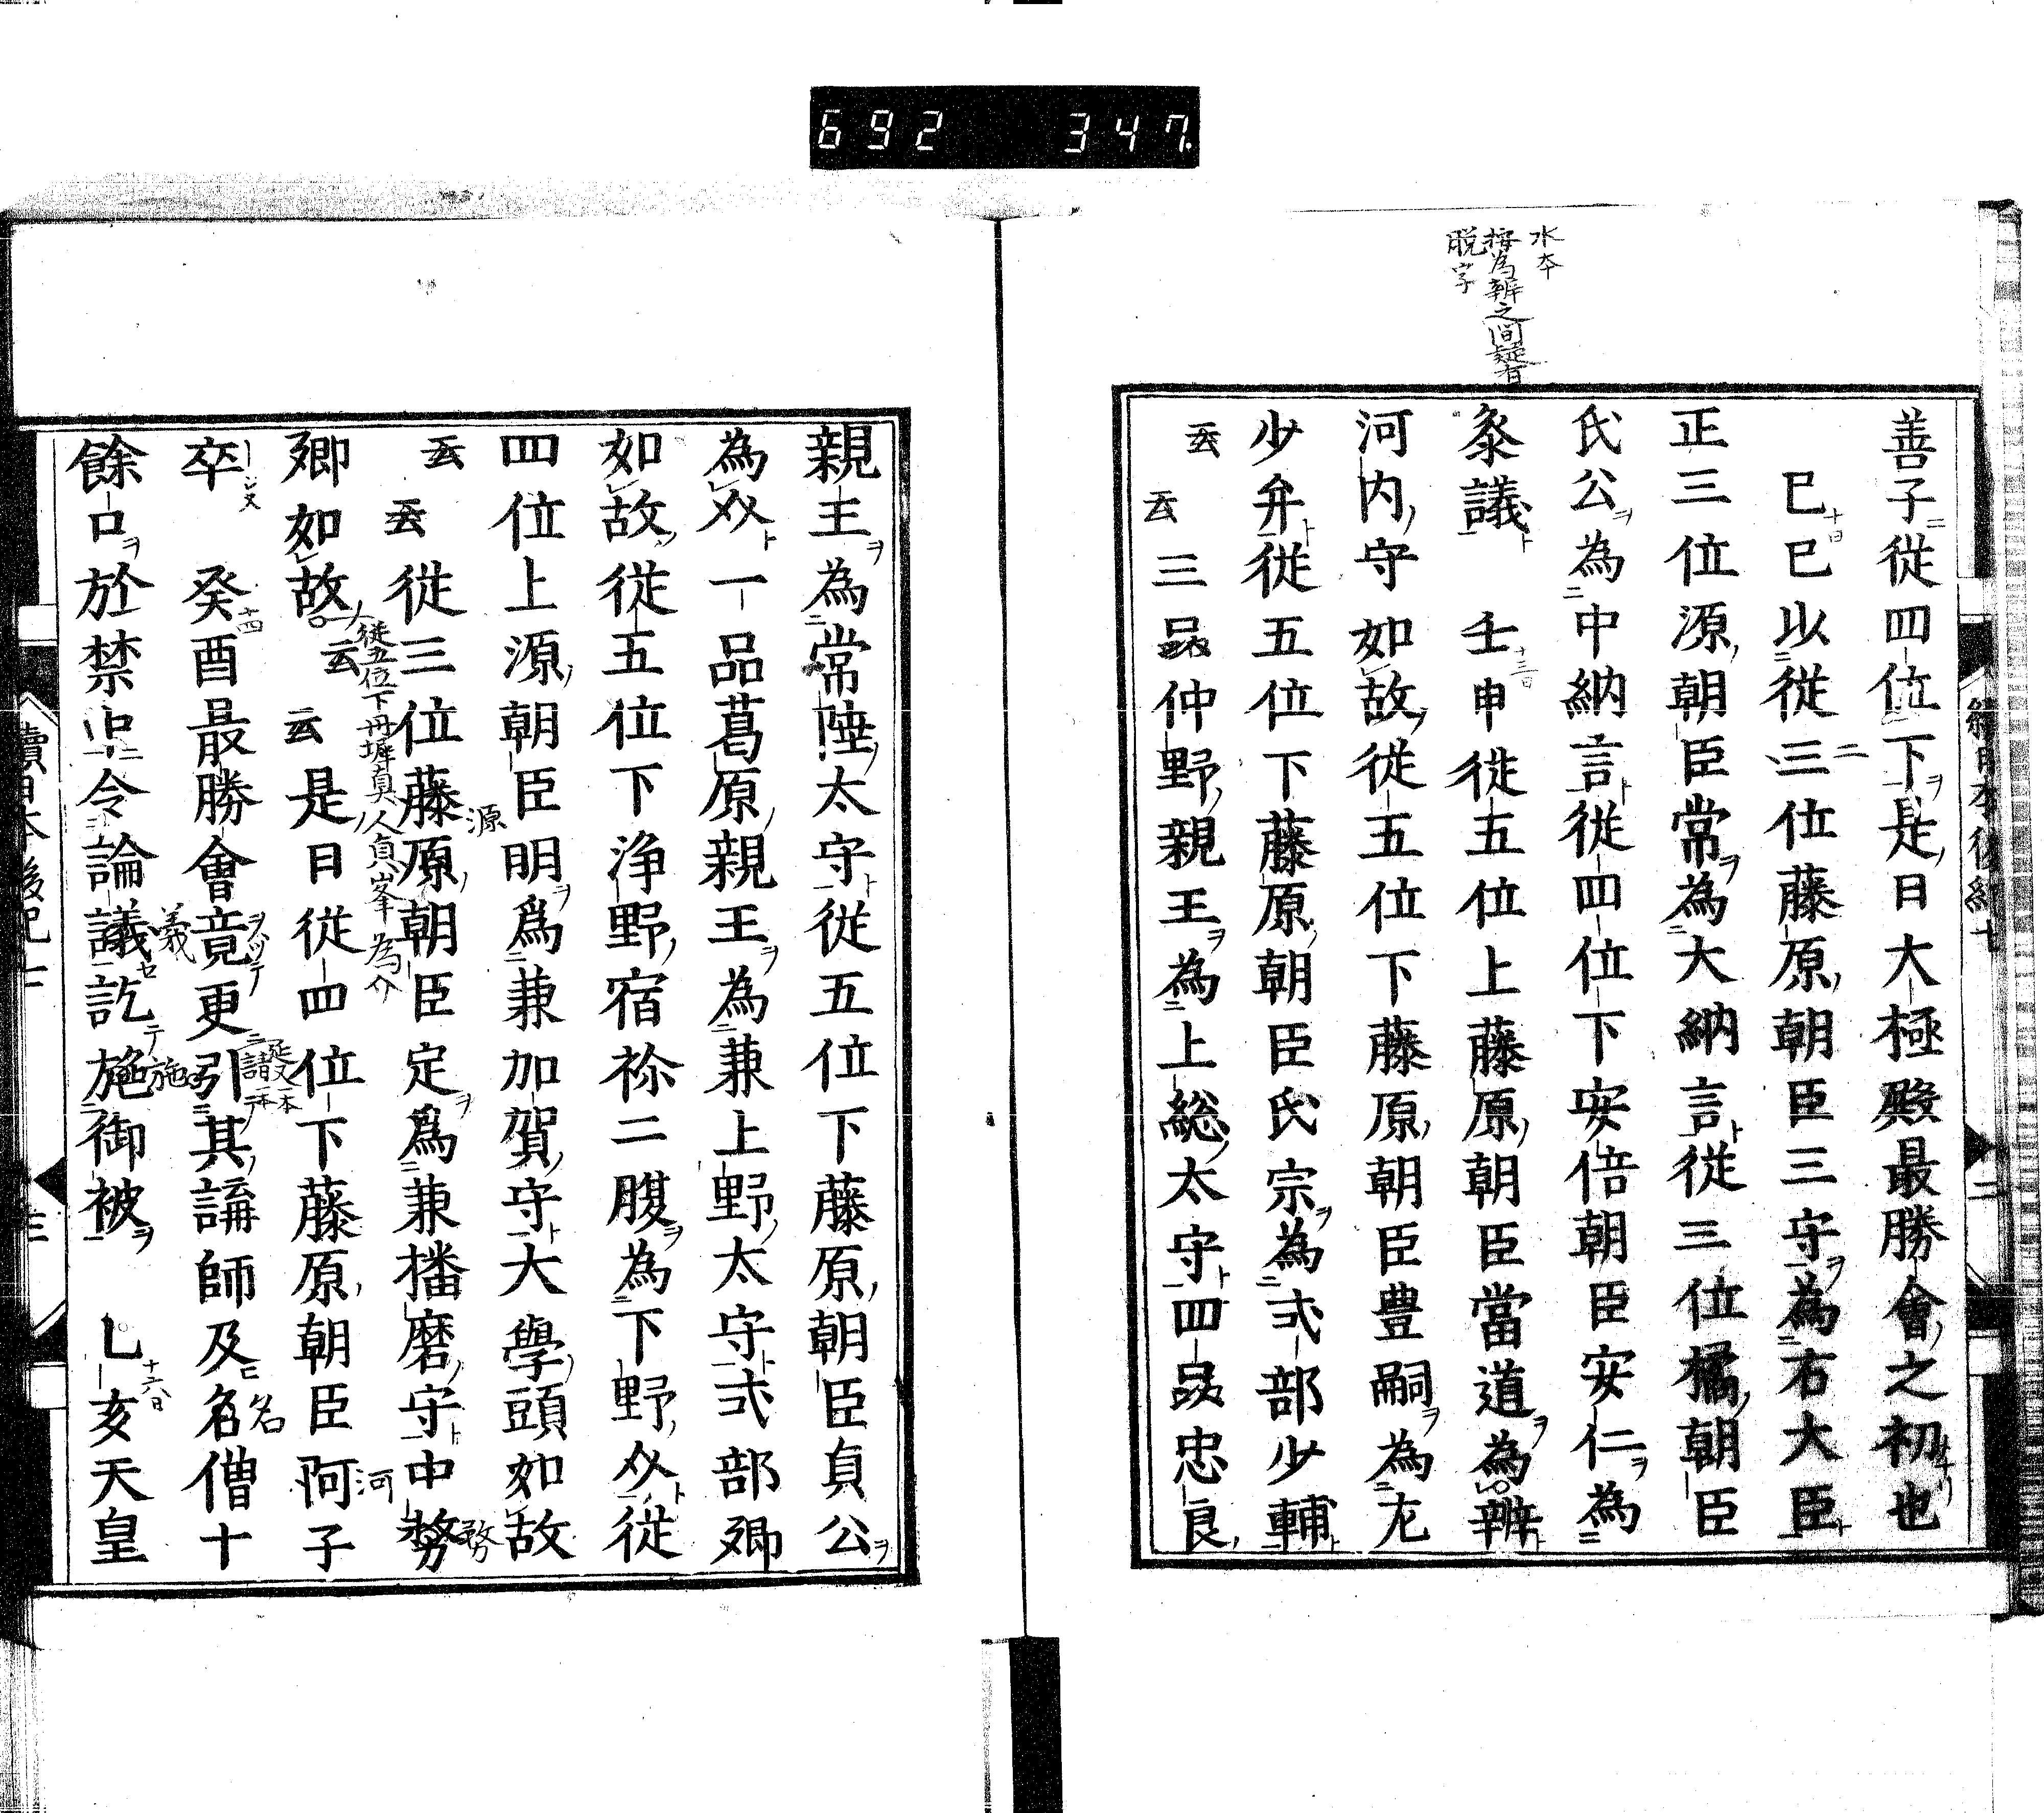 692 347.
水本
按為辨之間疑有
脱字
善子從四位下是日大極殿最勝會之初也
巳巳以從三位藤原朝臣三守為右大臣
正三位源朝臣常為大納言從三位橘朝臣
氏公為中納言從四位下安倍朝臣安仁為
叅議 壬申從五位上藤原朝臣當道為辨
河内守如故從五位下藤原朝臣豊嗣為尢
少弁從五位下藤原朝臣氏宗為式部少輔
云云三品仲野親王為上総太守四品忠良
親王為常陸太守從五位下藤原朝臣貞公
為介一品葛原親王為兼上野太守式部卿
如故從五位下浄野宿祢二腹為下野介從
四位上源朝臣明為兼加賀守大學頭如故
云云從三位藤原朝臣定為兼播磨守中務
源
務
卿如故云云是日從四位下藤原朝臣阿子
從五位下丹墀真人貞峯為介
河
卒 癸酉最勝會竟更引其講師及名僧十
延文一本
請一本
名
餘口於禁中令論議訖施御被 乙亥天皇
義
施
十日
十三日
十四
十六日